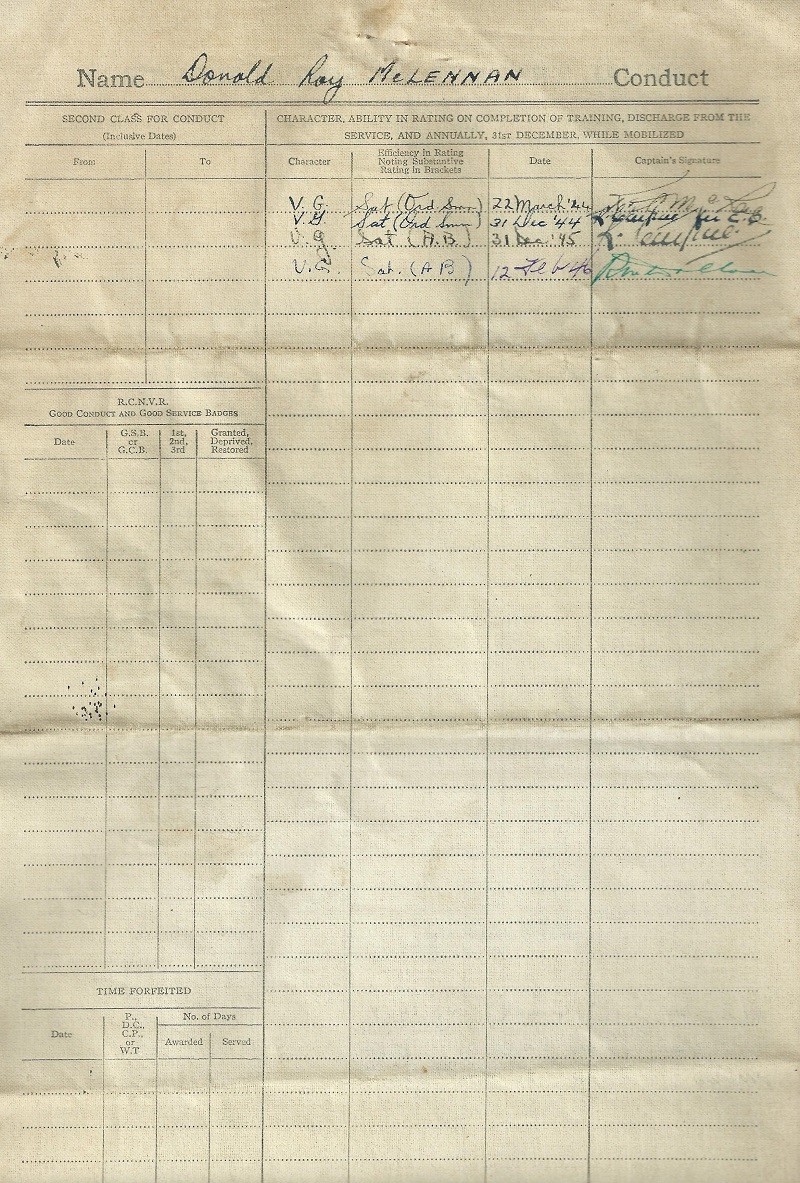 Name Donald Roy McLENNAN Conduct
SECOND CLASS FOR CONDUCT
(Inclusive Dates)
From To
CHARACTER, ABILITY IN RATING ON COMPLETION OF TRAINING, DISCHARGE FROM THE
SERVICE, AND ANNUALLY, 31ST DECEMBER, WHILE MOBILIZED
Character
Efficiency in Rating
Noting Substantive
Rating in Brackets
Date
Captain's Signature
V.G. Sat (Ord Smn) 22 March '44
V.G. Sat (Ord Smn) 31 Dec '44
V.G. Sat (A.B) 31 Dec '45
V.G. Sat. (AB) 12 Feb 46
R.C.N.V.R.
GOOD CONDUCT AND GOOD SERVICE BADGES
Date
G.S.B.
or
G.C.B.
1st,
2nd,
3rd
Granted,
Deprived,
Restored
TIME FORFEITED
Date
P.,
D.C.,
C.P.,
or
W.T
No. of Days
Awarded Served